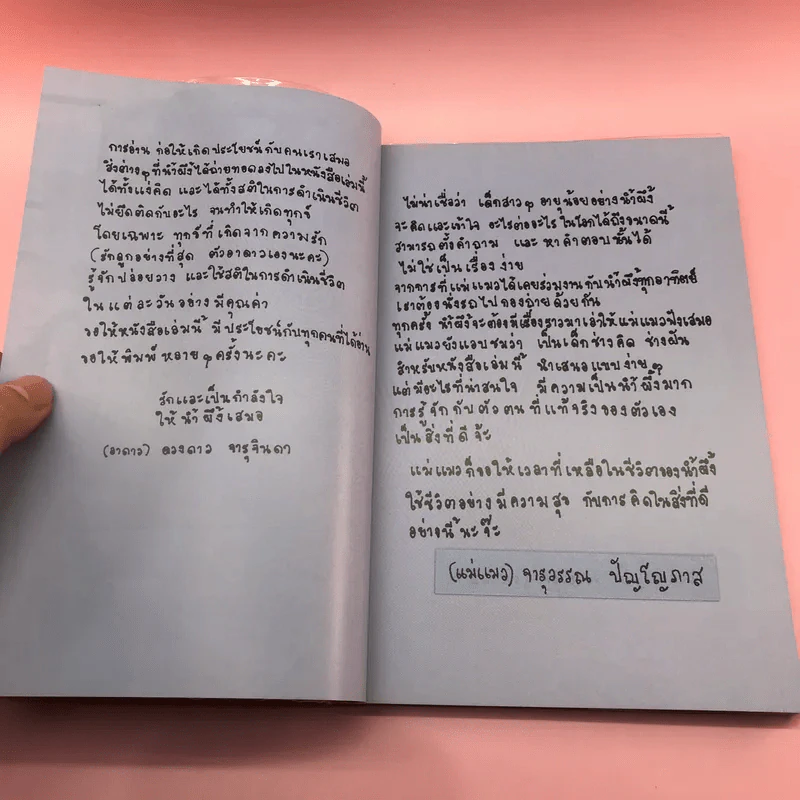 การอ่าน ก่อให้เกิดประโยชน์กับคนเราเสมอ
สิ่งต่างๆที่น้ำผึ้งได้ถ่ายทอดลงไปในหนังสือเล่มนี้
ได้ทั้งแง่คิด และได้ทั้งสติในการดำเนินชีวิต
ไม่ยึดติดกับอะไร จนทำให้เกิดทุกข์
โดยเฉพาะ ทุกข์ที่เกิดจากความรัก
(รักลูกอย่างที่สุด ตัวอาดาวเองนะคะ)
รู้จักปล่อยวาง และใช้สติในการดำเนินชีวิต
ในแต่ละวันอย่างมีคุณค่า
ขอให้หนังสือเล่มนี้ มีประโยชน์กับทุกคนที่ได้อ่าน
ขอให้พิมพ์หลายๆครั้งนะคะ
รักและเป็นกำลังใจ
ให้น้ำผึ้งเสมอ
(อาดาว) ดวงดาว จารุจินดา
ไม่น่าเชื่อว่า เด็กสาวๆ อายุน้อยอย่างน้ำผึ้ง
จะคิดและเข้าใจ อะไรต่ออะไรในโลกได้ถึงขนาดนี้
สามารถตั้งคำถาม และ หาคำตอบนั้นได้
ไม่ใช่เป็นเรื่องง่าย
จากการที่แม่แมวได้เคยร่วมงานกับน้ำผึ้งทุกอาทิตย์
เราต้องนั่งรถไปกองถ่ายด้วยกัน
ทุกครั้ง น้ำผึ้งจะต้องมีเรื่องราวมาเล่าให้แม่แมวฟังเสมอ
แม่แมวยังแอบชมว่า เป็นเด็กช่างคิด ช่างฝัน
สำหรับหนังสือเล่มนี้ นำเสนอแบบง่ายๆ
แต่มีอะไรที่น่าสนใจ มีความเป็นน้ำผึ้งมาก
การรู้จักกับตัวตนที่แท้จริงของตัวเอง
เป็นสิ่งที่ดีจ้ะ
แม่แมวก็ขอให้เวลาที่เหลือในชีวิตของน้ำผึ้ง
ใช้ชีวิตอย่างมีความสุข กับการคิดในสิ่งที่ดี
อย่างนี้นะจ๊ะ
(แม่แมว) จารุวรรณ ปัญโญภาส